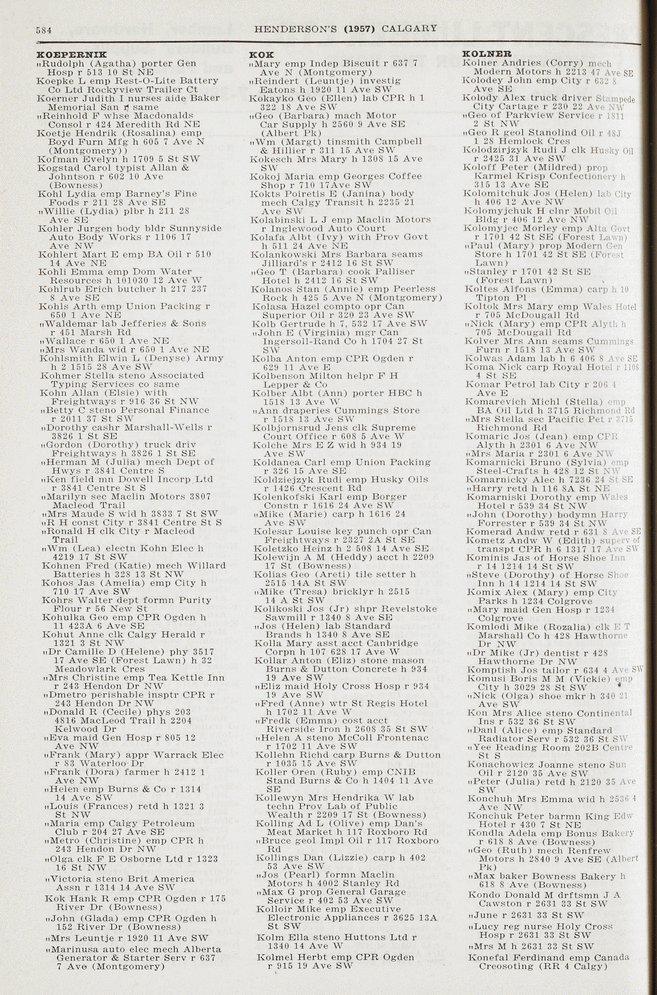 584
HENDERSON'S (1957) CALGARY
KOEPERNIK
"Rudolph (Agatha) porter Gen
Hosp r 513 10 St NE
Koepke L emp Rest-O-Lite Battery
Co Ltd Rockyview Trailer Ct
Koerner Judith I nurses aide Baker
Memorial San r same
"Reinhold F whse Macdonalds
Consol r 424 Meredith Rd NE
Koetje Hendrik (Rosalina) emp
Boyd Furn Mfg h 605 7 Ave N
(Montgomery))
Kofman Evelyn h 1709 5 St SW
Kogstad Carol typist Allan &
Johnson r 602 10 Ave
(Bowness)
Kohl Lydia emp Barney's Fine
Foods r 211 28 Ave SE
"Willie (Lydia) plbr h 211 28
Ave SE
Kohler Jurgen body bldr Sunnyside
Auto Body Works r 1106 17
Ave NW
Kohlert Mart E emp BA Oil r 510
14 Ave NE
Kohli Emma emp Dom Water
Resources h 101030 12 Ave W
Kohlrub Erich butcher h 217 237
8 Ave SE
Kohls Arth emp Union Packing r
650 1 Ave NE
"Waldemar lab Jefferies & Sons
r 451 Marsh Rd
"Wallace r 650 1 Ave NE
"Mrs Wanda wid r 650 1 Ave NE
Kohlsmith Elwin L (Denyse) Army
h 2 1515 28 Ave SW
Kohmer Stella steno Associated
Typing Services co same
Kohn Allan (Elsie) with
Freightways r 916 36 St NW
"Betty C steno Personal Finance
r 2011 37 St SW
"Dorothy cashr Marshall-Wells r
3826 1 St SE
"Gordon (Dorothy) truck driv
Freightways h 3826 1 St SE
"Herman M (Julia) mech Dept of
Hwys r 3841 Centre S
"Ken field mn Dowell Incorp Ltd
r 3841 Centre St S
"Marilyn sec Maclin Motors 3807
Macleod Trail
"Mrs Maude S wid h 3833 7 St SW
"R H const City r 3841 Centre St S
"Ronald H clk City r Macleod
Trail
"Wm (Lea) electn Kohn Elec h
4219 17 St SW
Kohnen Fred (Katie) mech Willard
Batteries h 328 13 St NW
Kohos Jas (Amelia) emp City h
710 17 Ave SW
Kohrs Walter dept formn Purity
Flour r 56 New St
Kohulka Geo emp CPR Ogden h
11 423A 6 Ave SE
Kohut Anne clk Calgary Herald r
1321 3 St NW
"Dr Camille D (Helene) phy 3517
17 Ave SE (Forest Lawn) h 32
Meadowlark Cres
"Mrs Christine emp Tea Kettle Inn
r 243 Hendon Dr NW
"Dmetro perishable insptr CPR r
243 Hendon Dr NW
"Donald R (Cecile) phys 203
4816 MacLeod Trail h 2204
Kelwood Dr
"Eva maid Gen Hosp r 805 12
Ave NW
"Frank (Mary) appr Warrack Elec
r 83 Waterloo Dr
"Frank (Dora) farmer h 2412 1
Ave NW
"Helen emp Burns & Co r 1314
14 Ave SW
"Louis (Frances) retd h 1321 3
St NW
"Maria emp Calgy Petroleum
Club r 204 27 Ave SE
"Metro (Christine) emp CPR h
243 Hendon Dr NW
"Olga clk F E Osborne Ltd r 1323
16 St NW
"Victoria steno Brit America
Assn r 1314 14 Ave SW
Kok Hank R emp CPR Ogden r 175
River Dr (Bowness)
"John (Glada) emp CPR Ogden h
152 River Dr (Bowness)
"Mrs Leuntje r 1920 11 Ave SW
"Marinusa auto elec mech Alberta
Generator & Starter Serv r 637
7 Ave (Montgomery)
KOK
"Mary emp Indep Biscuit r 637 7
Ave N (Montgomery)
"Reindert (Leuntje) investig
Eatons h 1920 11 Ave SW
Kokayko Geo (Ellen) lab CPR h 1
322 18 Ave SW
"Geo (Barbara) mach Motor
Car Supply h 2560 9 Ave SE
(Albert Pk)
"Wm (Margt) tinsmith Campbell
& Hillier r 311 15 Ave SW
Kokesch Mrs Mary h 1308 15 Ave
SW
Kokoj Maria emp Georges Coffee
Shop r 710 17Ave SW
Kokts Poiretis E (Janina) body
mech Calgy Transit h 2235 21
Ave SW
Kolabinski L J emp Maclin Motors
r Inglewood Auto Court
Kolafa Albt (Ivy) with Prov Govt
h 511 24 Ave NE
Kolankowski Mrs Barbara seams
Jilliard's r 2412 16 St SW
"Geo T (Barbara) cook Palliser
Hotel h 2412 16 St SW
Kolanos Stan (Annie) emp Peerless
Rock h 425 5 Ave N (Montgomery)
Kolasa Hazel compto opr Can
Superior Oil r 320 23 Ave SW
Kolb Gertrude h 7, 532 17 Ave SW
"John E (Virginia) mgr Can
Ingersoll-Rand Co h 1704 27 St
SW
Kolba Anton emp CPR Ogden r
629 11 Ave E
Kolbenson Milton helpr F H
Lepper & Co
Kolber Albt (Ann) porter HBC h
1518 13 Ave W
"Ann draperies Cummings Store
r 1518 13 Ave SW
Kolbjornsrud Jens clk Supreme
Court Office r 608 5 Ave W
Kolche Mrs E Z wid h 934 19
Ave SW
Koldanea Carl emp Union Packing
r 326 15 Ave SE
Koldziejzyk Rudi emp Husky Oils
r 1426 Crescent Rd
Kolenkofski Karl emp Borger
Constn r 1616 24 Ave SW
"Mike (Marie) carp h 1616 24
Ave SW
Kolesar Louise key punch opr Can
Freightways r 2327 2A St SE
Koletzko Heinz h 2 508 14 Ave SE
Kolewijn A M (Heddy) acct h 2209
17 St (Bowness)
Kolias Geo (Areti) tile setter h
2515 14A St SW
"Mike (Tresa) bricklyr h 2515
14 A St SW
Kolikoski Jos (Jr) shpr Revelstoke
Sawmill r 1340 8 Ave SE
"Jos (Helen) lab Standard
Brands h 1340 8 Ave SE
Kolla Mary asst acct Canbridge
Corpn h 107 628 17 Ave W
Kollar Anton (Eliz) stone mason
Burns & Dutton Concrete h 934
19 Ave SW
"Eliz maid Holy Cross Hosp r 934
19 Ave SW
"Fred (Anne) wtr St Regis Hotel
h 1702 11 Ave W
"Fredk (Emma) cost acct
Riverside Iron h 2608 35 St SW
"Helen A steno McColl Frontenac
r 1702 11 Ave SW
Kollehn Richd carp Burns & Dutton
r 1035 15 Ave SW
Koller Oren (Ruby) emp CNIB
Stand Burns & Co h 1404 11 Ave
SE
Kollewyn Mrs Hendrika W lab
techn Prov Lab of Public
Wealth r 2209 17 St (Bowness)
Kolling Ad L (Olive) emp Dan's
Meat Market h 117 Roxboro Rd
"Bruce geol Impl Oil r 117 Roxboro
Rd
Kollings Dan (Lizzie) carp h 402
53 Ave SW
"Jos (Pearl) formn Maclin
Motors h 4002 Stanley Rd
"Max G prop General Garage
Service r 402 53 Ave SW
Kolloir Mike emp Executive
Electronic Appliances r 3625 13A
St SW
Kolm Ella steno Huttons Ltd r
1340 14 Ave W
Kolmel Herbt emp CPR Ogden
r 915 19 Ave SW
KOLNER
Kolner Andries (Corry) mech
Modern Motors h 2213 47 Ave SE
Kolodey John emp City r 632 8
Ave SE
Kolody Alex truck driver Stampede
City Cartage r 230 22 Ave NW
"Geo of Parkview Service r 1811
2 St NW
"Geo R geol Stanolind Oil r 48J
1 28 Hemlock Cres
Kolodzirjzyk Rudi J clk Husky Oil
r 2425 31 Ave SW
Koloff Peter (Mildred) prop
Karmel Krisp Confectionery h
315 13 Ave SE
Kolomitchuk Jos (Helen) lab City
h 406 12 Ave NW
Kolomyjchuk H clnr Mobil Oil
Bldg r 406 12 Ave NW
Kolomyjec Morley emp Alta Govt
r 1701 42 St SE (Forest Lawn)
"Paul (Mary) prop Modern Gen
Store h 1701 42 St SE (Forest
Lawn)
"Stanley r 1701 42 St SE
(Forest Lawn)
Koltes Alfons (Emma) carp h 10
Tipton Pl
Koltok Mrs Mary emp Wales Hotel
r 705 McDougall Rd
"Nick (Mary) emp CPR Alyth h
705 McDougall Rd
Kolver Mrs Ann seams Cummings
Furn r 1518 13 Ave SW
Kolwas Adam lab h 6 406 8 Ave SE
Koma Nick carp Royal Hotel r 1108
4 St SE
Komar Petrol lab City r 206 4
Ave E
Komarevich Michl (Stella) emp
BA Oil Ltd h 3715 Richmond Rd
"Mrs Stella sec Pacific Pet r 3715
Richmond Rd
Komaric Jos (Jean) emp CPR
Alyth h 2301 6 Ave NW
"Mrs Maria r 2301 6 Ave NW
Komarnicki Bruno (Sylvia) emp
Steel-Crafts h 428 12 St NW
Komarnicky Alec h 7236 24 St SE
"Harry retd h 116 8A St NE
Komarniski Dorothy emp Wales
Hotel r 539 34 St NW
"John (Dorothy) bodymn Harry
Forrester r 539 34 St NW
Komerad Andw retd r 631 8 Ave SE
Kometz Andw W (Edith) superv of
transpt CPR h 6 1317 17 Ave SW
Kominis Jas of Horse Shoe Inn
r 14 1214 14 St SW
"Steve (Dorothy) of Horse Shoe
Inn h 14 1214 14 St SW
Komix Alex (Mary) emp City
Parks h 1234 Colgrove
"Mary maid Gen Hosp r 1234
Colgrove
Komlodi Mike (Rozalia) clk E T
Marshall Co h 428 Hawthorne
Dr NW
"Dr Mike (Jr) dentist r 428
Hawthorne Dr NW
Komptish Jos tailor r 634 4 Ave SW
Komusi Boris M M (Vickie) emp
City h 3029 28 St SW
"Nick (Olga) shoe mkr h 340 21
Ave SW
Kon Mrs Alice steno Continental
Ins r 532 36 St SW
"Danl (Alice) emp Standard
Radiator Serv r 532 36 St SW
"Yee Reading Room 202B Centre
St S
Konachowicz Joanne steno Sun
Oil r 2120 35 Ave SW
"Peter (Julia) retd h 2120 35 Ave
SW
Konchuh Mrs Emma wid h 2536 4
Ave NW
Konchuk Peter barmn King Edw
Hotel r 430 7 St NE
Kondla Adela emp Bonus Bakery
r 618 8 Ave (Bowness)
"Geo (Ruth) mech Renfrew
Motors h 2840 9 Ave SE (Albert
Pk)
"Max baker Bowness Bakery h
618 8 Ave (Bowness)
Kondo Donald M drftsmn J A
Cawston r 2631 33 St SW
"June r 2631 33 St SW
"Lucy reg nurse Holy Cross
Hosp r 2631 33 St SW
"Mrs M h 2631 33 St SW
Konefal Ferdinand emp Canada
Creosoting (RR 4 Calgy)